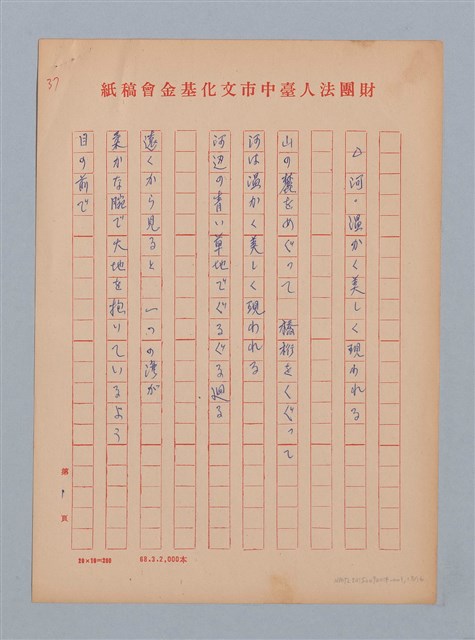 37
財團法人臺中市文化基金會稿紙
△ 河・温かく美しく現われる
山の麓をめぐって 橋桁をくぐって
河は温かく美しく現われる
河辺の青い草地でぐるぐる廻る
遠くから見ると 一つの湾が
柔かな腕で大地を抱いているよう
目の前で
第 頁
68.3.2,000本